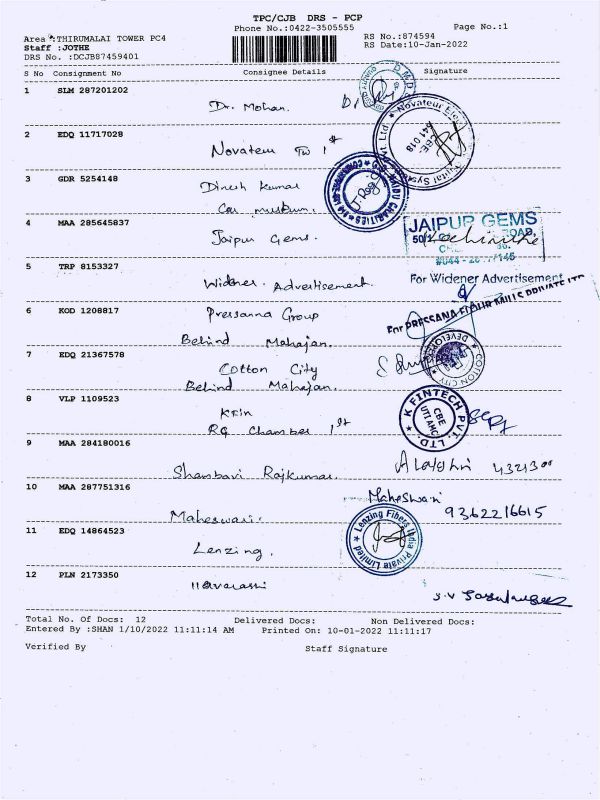 TPC/CJB DRS - PCP
Phone No.:0422-3505555
Page No.:1
Area :THIRUMALAI TOWER PC4
RS No.:874594
Staff :JOTHE
RS Date:10-Jan-2022
DRS No. :DCJB87459401
S No Consignment No Consignee Details Signature
1 SLM 287201202
Dr. Mohan.
2 EDQ 11717028
Novateur
3 GDR 5254148
Dinesh Kumar
Car museum.
4 MAA 285645837
Jaipur Gems.
JAIPUR GEMS
ROAD,
5 TRP 8153327
Widener. Advertisement.
For Widener Advertisement
6 KOD 1208817
Pressanna Group
Behind Mahajan.
For PRESSANA FLOUR MILLS PRIVATE LTD
7 EDQ 21367578
Cotton City
Behind Mahajan.
COTTON CITY DEVELOPERS
8 VLP 1109523
RG Chamber 1st
K FINTECH PVT. LTD.
CBE
UTI AMC
9 MAA 284180016
Shambavi Rajkumar.
10 MAA 287751316
Maheswari.
Maheswari
9362216615
11 EDQ 14864523
Lenzing.
Lenzing Fibers India Private Limited
12 PLN 2173350
Total No. Of Docs: 12 Delivered Docs: Non Delivered Docs:
Entered By :SHAN 1/10/2022 11:11:14 AM Printed On: 10-01-2022 11:11:17
Verified By Staff Signature